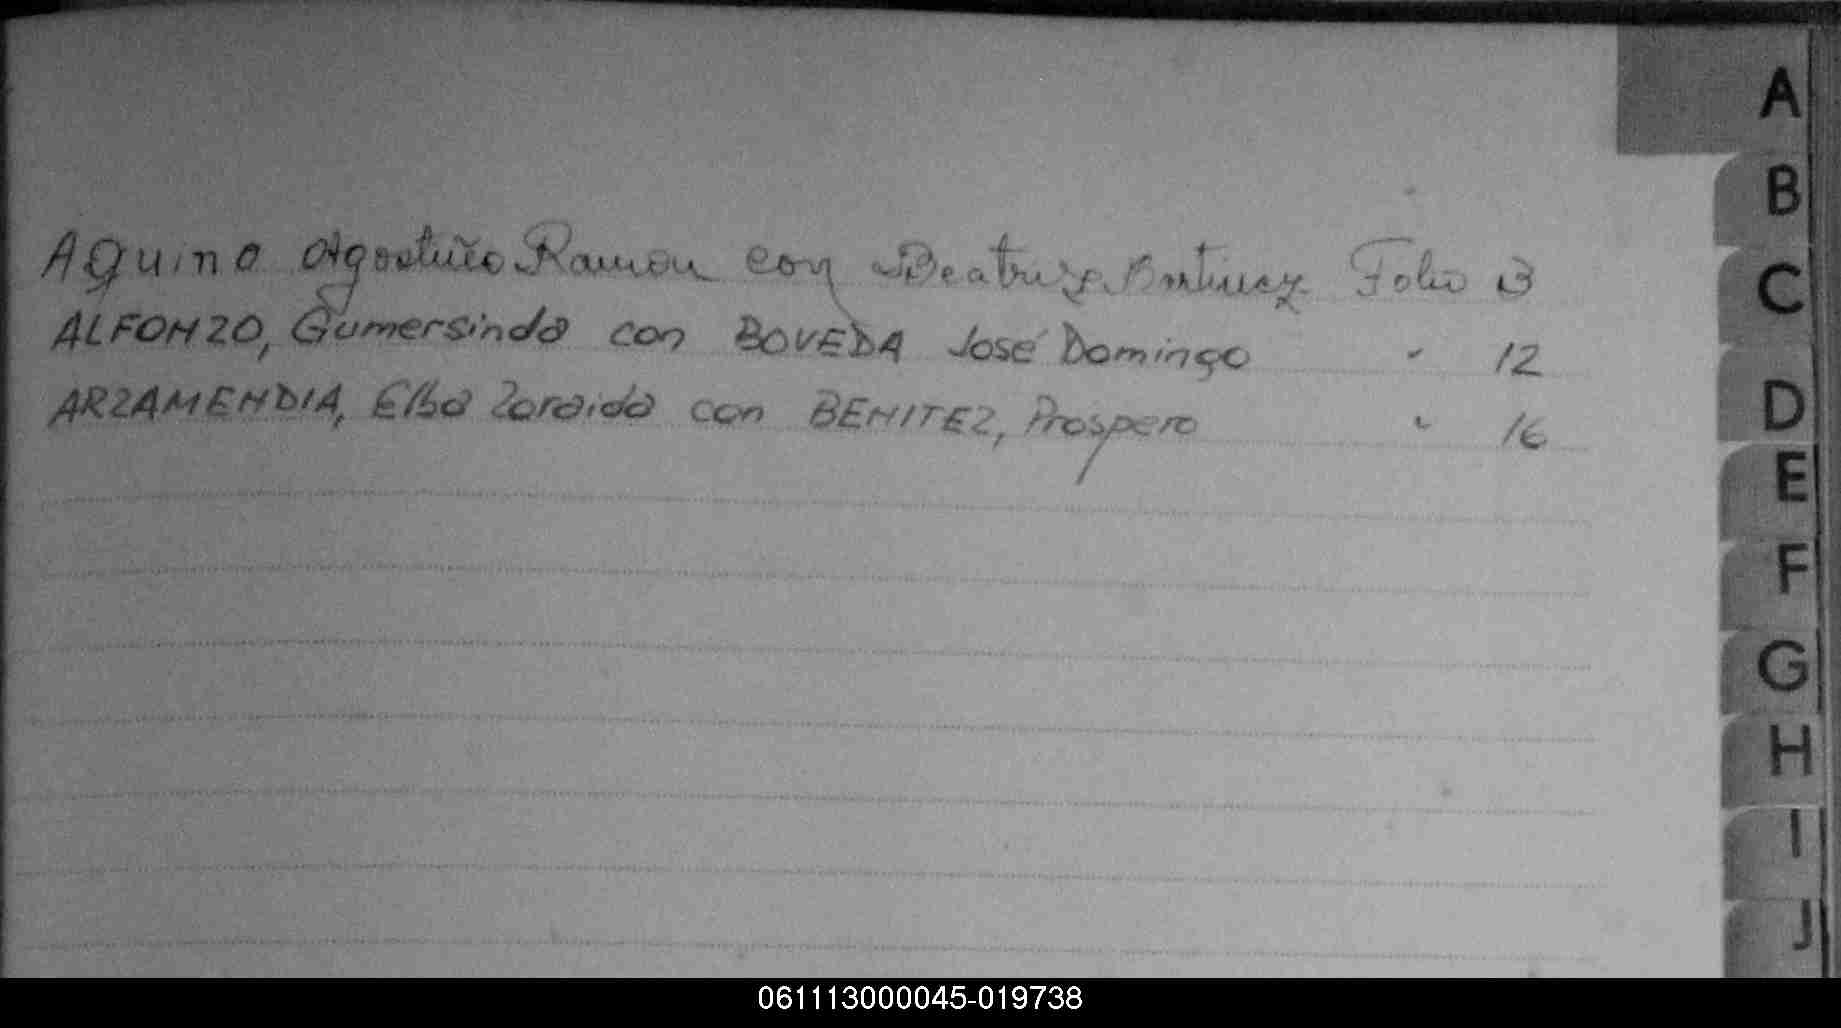 Aquino Agostiño Ramón con Beatriz Folio 3
ALFONZO, Gumersindo con BOVEDA José Domingo " 12
ARZAMENDIA, Elba Zoraida con BENITEZ, Prospero " 16
A
B
C
D
E
F
G
H
I
J
061113000045-019738